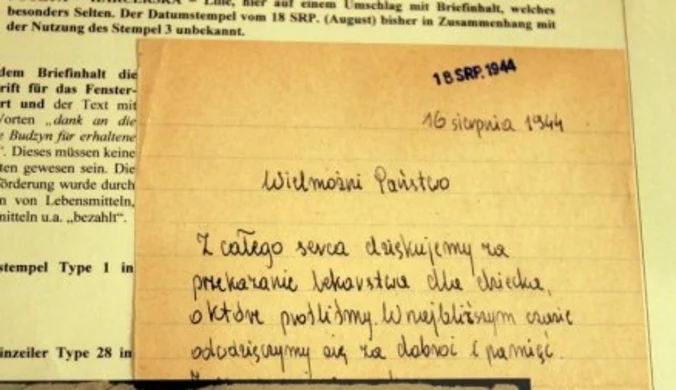 HARCERSKA – Linie, hier auf einem Umschlag mit Briefinhalt, welches
besonders Selten. Der Datumstempel vom 18 SRP. (August) bisher in Zusammenhang mit
der Nutzung des Stempel 3 unbekannt.
dem Briefinhalt die
rift für das Fenster-
rt und der Text mit
Worten „dank an die
e Budzyn für erhaltene
“. Dieses müssen keine
ten gewesen sein. Die
förderung wurde durch
n von Lebensmitteln,
mitteln u.a. „bezahlt“.
stempel Type 1 in
inzeiler Type 28 in
18 SRP. 1944
16 sierpnia 1944
Wielmożni Państwo
Z całego serca dziękujemy za
przekazanie lekarstwa dla dziecka,
o które prosiliśmy. W najbliższym czasie
odwdzięczymy się za dobroć i pamięć.